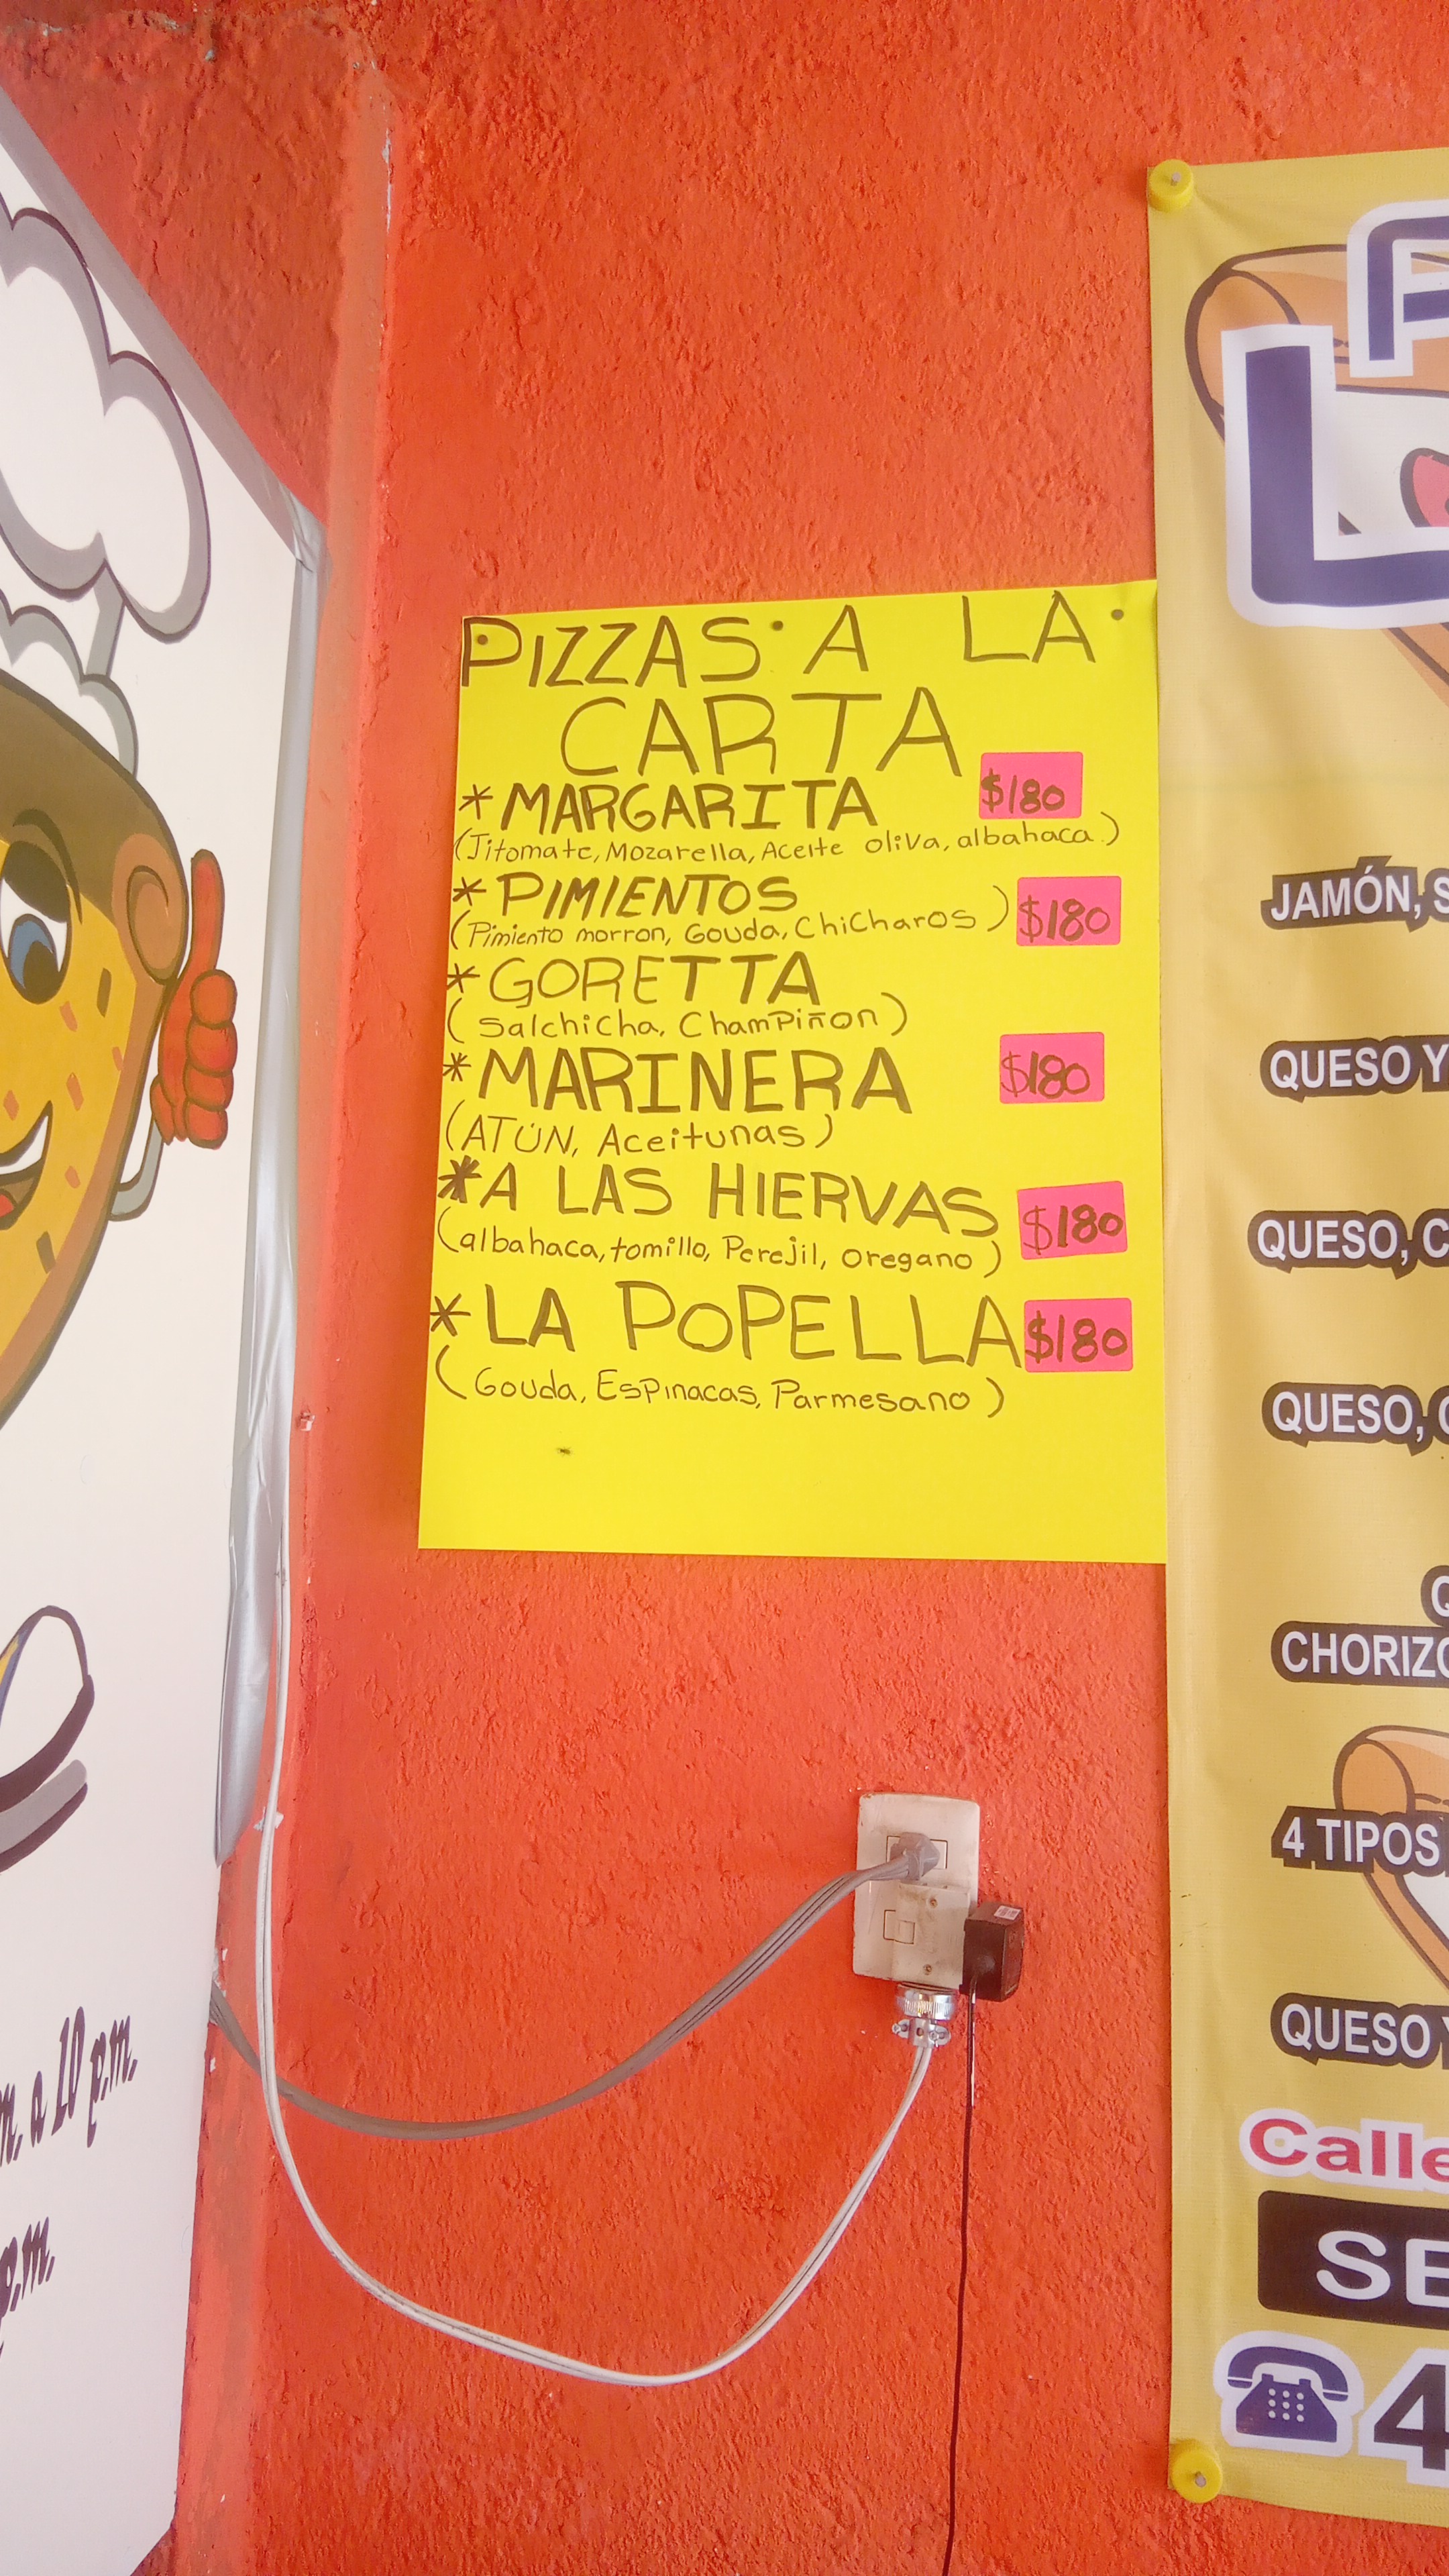 PIZZAS A LA
CARTA
* MARGARITA $180
(Jitomate, Mozarella, Aceite oliva, albahaca.)
* PIMIENTOS $180
(Pimiento morron, Gouda, ChiCharos)
* GORETTA
(Salchicha, Champiñon)
* MARINERA $180
(ATÚN, Aceitunas)
* A LAS HIERVAS $180
(albahaca, tomillo, Perejil, oregano)
* LA POPELLA $180
(Gouda, Espinacas, Parmesano)
L
JAMÓN, S
QUESO Y
QUESO, C
QUESO,
CHORIZO
4 TIPOS
QUESO Y
Calle
SE
4
a 10 p.m.
p.m.